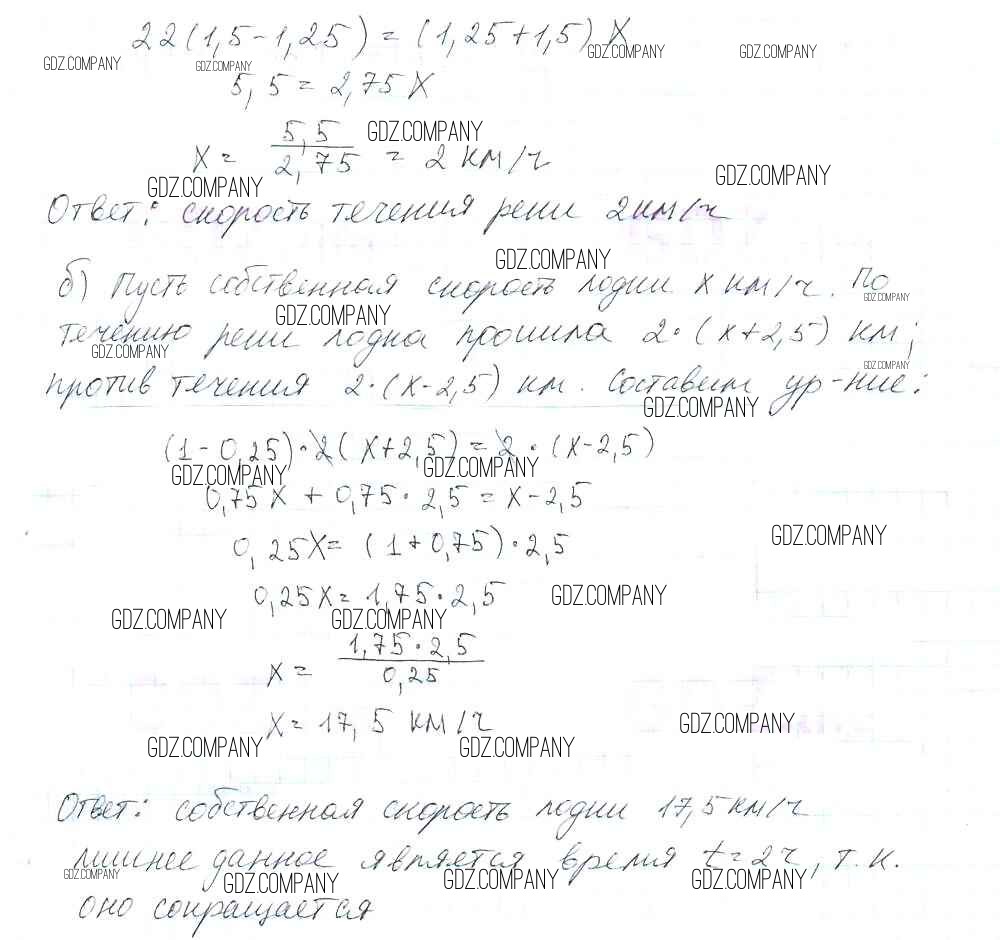 22(1,5-1,25) = (1,25+1,5) X
GDZ.COMPANY GDZ.COMPANY GDZ.COMPANY GDZ.COMPANY
5,5 = 2,75 X
X = 5,5 / 2,75 = 2 км/ч
GDZ.COMPANY
GDZ.COMPANY GDZ.COMPANY
Ответ: скорость течения реки 2 км/ч
GDZ.COMPANY
б) Пусть собственная скорость лодки x км/ч. По
GDZ.COMPANY GDZ.COMPANY
течению реки лодка прошла 2·(x+2,5) км;
GDZ.COMPANY GDZ.COMPANY
против течения 2·(x-2,5) км. Составим ур-ние:
GDZ.COMPANY
(1-0,25)·2(x+2,5) = 2·(x-2,5)
GDZ.COMPANY GDZ.COMPANY
0,75x + 0,75·2,5 = x-2,5
GDZ.COMPANY
0,25x = (1+0,75)·2,5
0,25x = 1,75·2,5
GDZ.COMPANY
GDZ.COMPANY GDZ.COMPANY
x = 1,75·2,5 / 0,25
x = 17,5 км/ч
GDZ.COMPANY
GDZ.COMPANY GDZ.COMPANY
Ответ: собственная скорость лодки 17,5 км/ч
лишнее данное является время t=2ч, т.к.
GDZ.COMPANY GDZ.COMPANY GDZ.COMPANY GDZ.COMPANY
оно сокращается